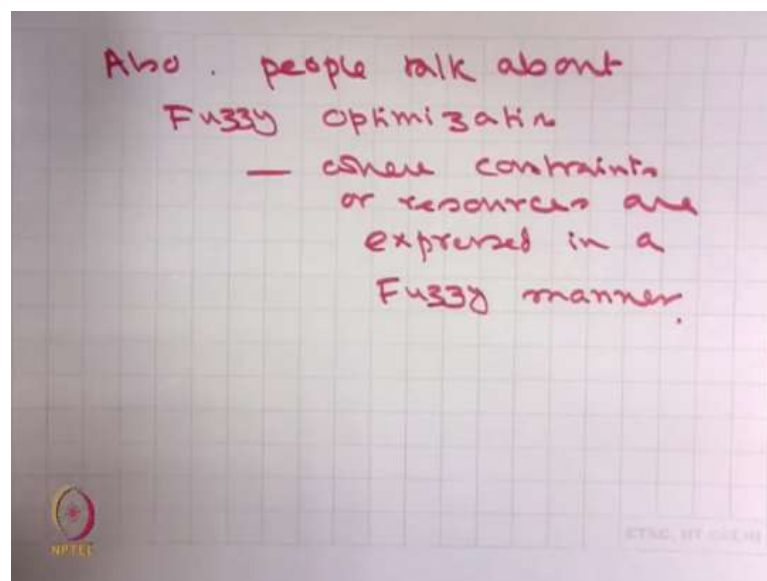 Also. people talk about
Fuzzy optimization
— where constraints
or resources are
expressed in a
Fuzzy manner.
NPTEL
ETSC, IIT DELHI